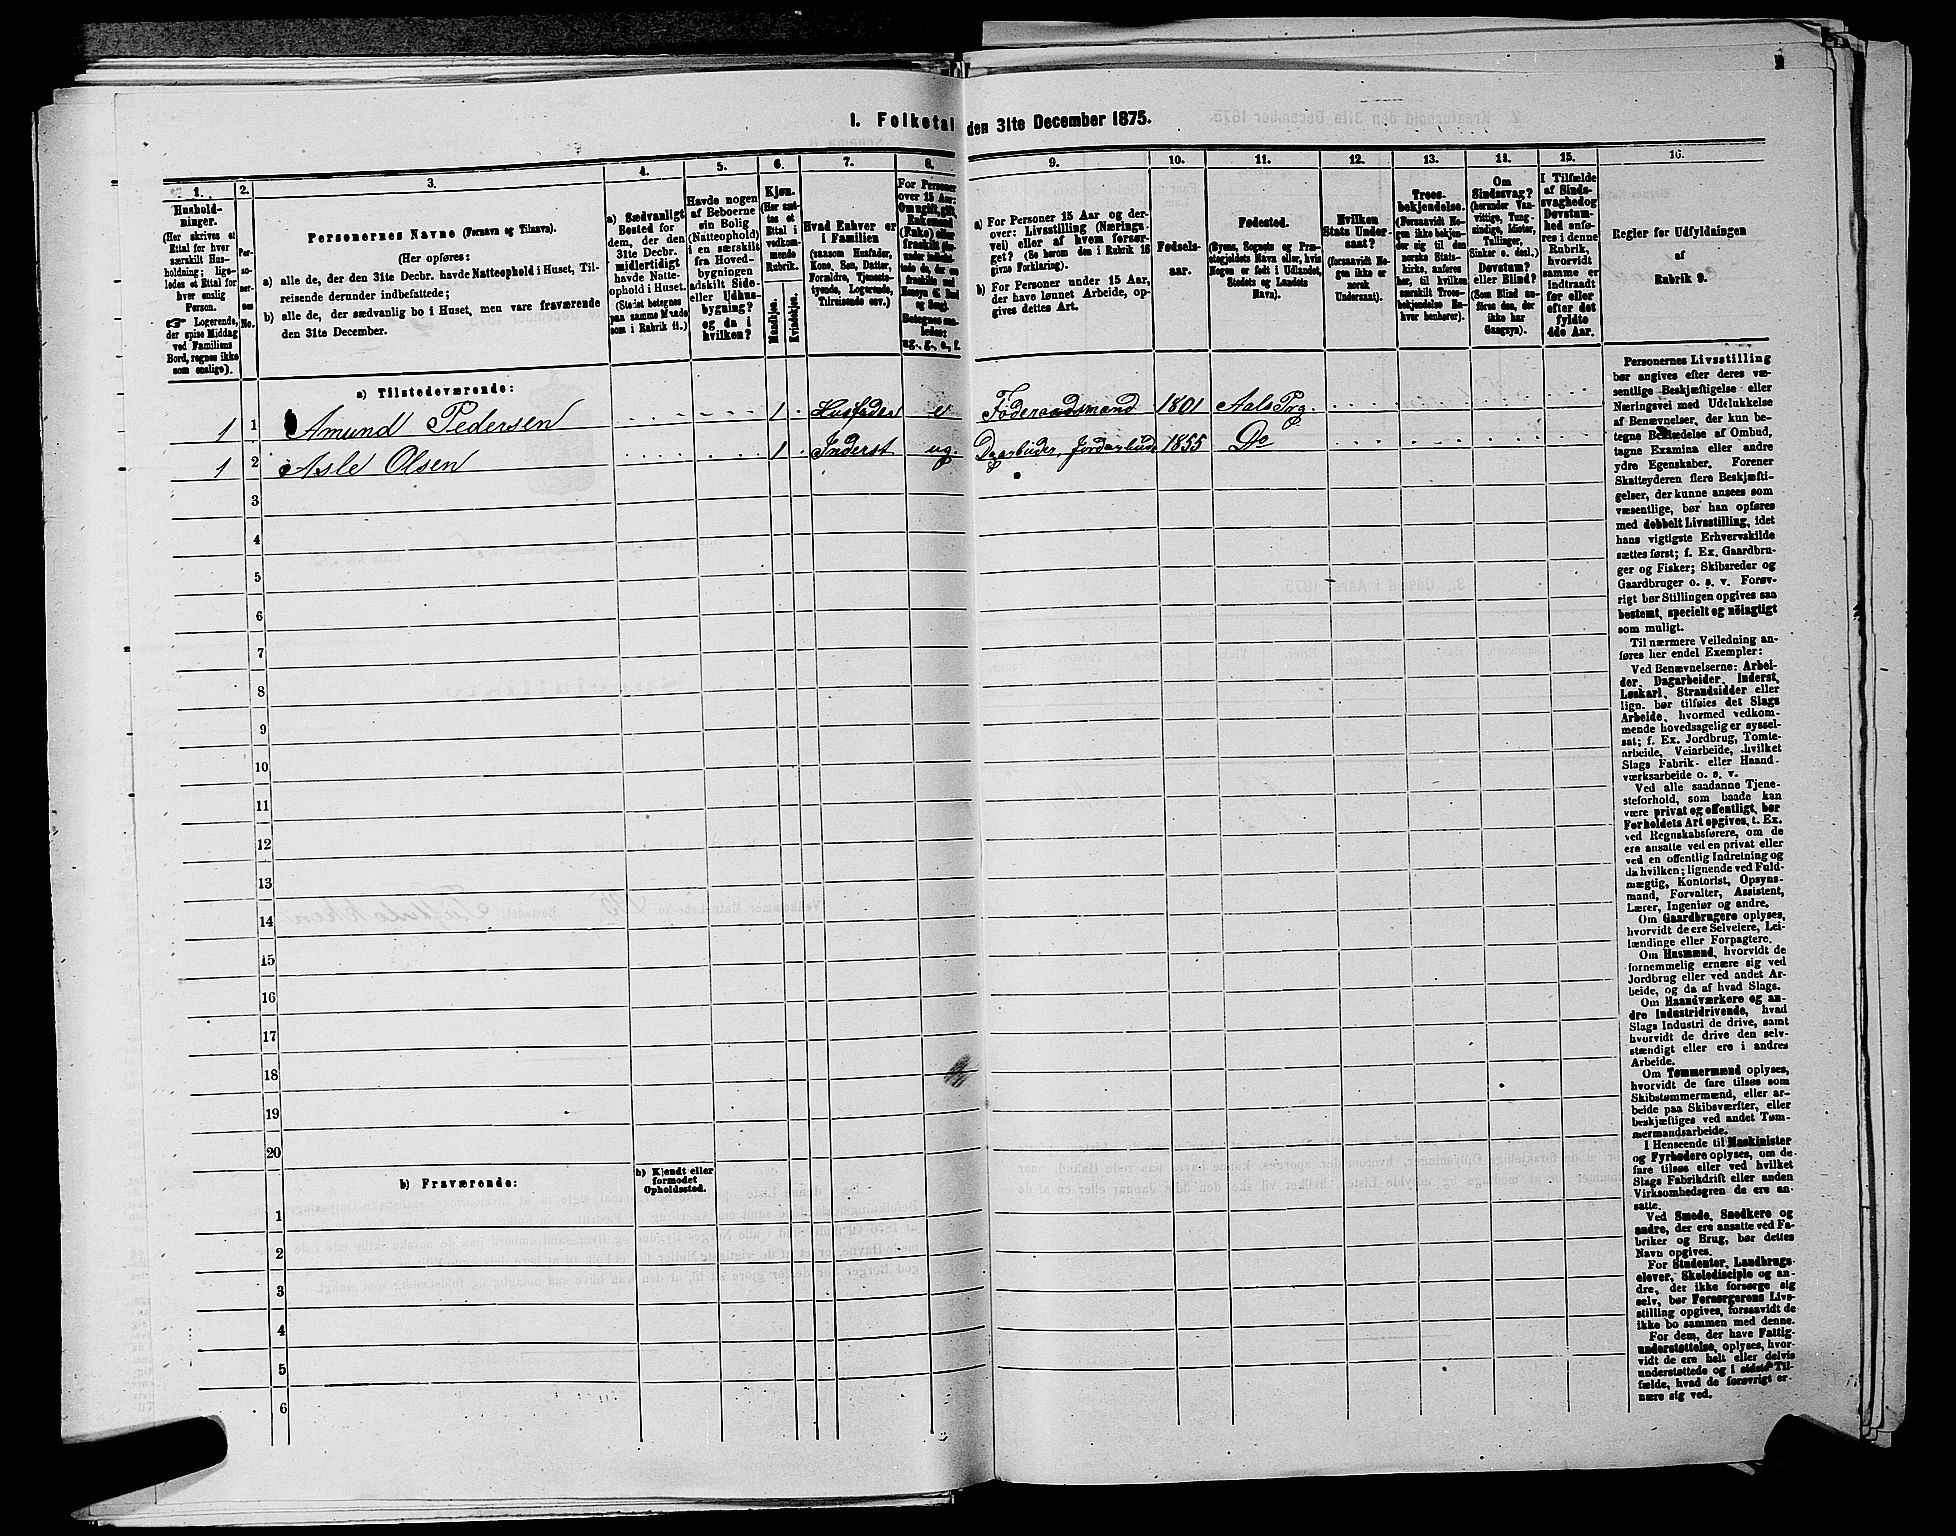 1. Folketal den 31te December 1875.
1. 2. 3. 4. 5. 6. 7. 8. 9. 10. 11. 12. 13. 14. 15. 16.
Hushold-
ninger.
(Her skrives et
Ettal for hver
særskilt Hus-
holdning; lige-
ledes et Ettal for
hver enslig
Person.
☞ Logerende,
der spise Middag
ved Familiens
Bord, regnes ikke
som enslige).
Per-
so-
ner-
nes
No.
Personernes Navne (Fornavn og Tilnavn).
(Her opføres:
a) alle de, der den 31te Decbr. havde Natteophold i Huset, Til-
reisende derunder indbefattede;
b) alle de, der sædvanlig bo i Huset, men vare fraværende
den 31te December.
a) Sædvanligt
Bosted for
dem, der den
31te Decbr.
midlertidigt
havde Natte-
ophold i Huset.
(Stedet betegnes
paa samme Maade
som i Rubrik 11.)
Havde nogen
af Beboerne
sin Bolig
(Natteophold)
i en særskilt
fra Hoved-
bygningen
adskilt Side-
eller Udhus-
bygning?
og da i
hvilken?
Kjøn.
(Her sæt-
tes et
Ettal i
vedkom-
mende
Rubrik.
Mandkjøn.
Kvindekjøn.
Hvad Enhver er
i Familien
(saasom Husfader,
Kone, Søn, Datter,
Forældre, Tjeneste-
tyende, Logerende,
Tilreisende osv.)
For Personer
over 15 Aar:
Om ugift, gift,
Enkemand
(Enke) eller
fraskilt
a) For Personer 15 Aar og der-
over: Livsstilling (Nærings-
vei) eller af hvem forsør-
get? (Se herom den i Rubrik 16
givne Forklaring).
b) For Personer under 15 Aar,
der have lønnet Arbeide, op-
gives dettes Art.
Fødsels-
aar.
Fødested.
(Byens, Sognets og Præ-
stegjeldets Navn eller, hvis
Nogen er født i Udlandet,
Stedets og Landets
Navn).
Hvilken
Stats Under-
saat?
(forsaavidt No-
gen ikke er
norsk
Undersaat).
Troes-
bekjendelse.
(Forsaavidt No-
gen ikke bekjen-
der sig til den
norske Stats-
kirke, anføres
her, til hvilken
særskilt Troes-
bekjendelse En-
hver henhører).
Om
Sindssvag?
(herunder Van-
vittige, Tung-
sindige, Idioter,
Tullinger,
Sinker o. desl.).
Døvstum?
eller Blind?
(Som Blind an-
føres den, der
ikke har
Gangsyn).
I Tilfælde
af Sinds-
svaghed og
Døvstum-
hed anfø-
res i denne
Rubrik,
hvorvidt
samme er
indtraadt
før eller
efter det
fyldte
4de Aar.
Regler for Udfyldningen
af
Rubrik 9.
a) Tilstedeværende:
1 1 Amund Pedersen 1 Husfader e Føderaadsmand 1801 Aals Prg.
1 2 Asle Olsen 1 Inderst ug. 1855 Do
3
4
5
6
7
8
9
10
11
12
13
14
15
16
17
18
19
20
b) Fraværende:
b) Kjendt eller
formodet
Opholdssted.
1
2
3
4
5
6
Personernes Livsstilling
bør angives efter deres væ-
sentlige Beskjæftigelse eller
Næringsvei med Udelukkelse
af Benævnelser, der kun be-
tegne Beklædelse af Ombud,
tagne Examina eller andre
ydre Egenskaber. Forener
Skatteyderen flere Beskjæfti-
gelser, der kunne ansees som
væsentlige, bør han opføres
med dobbelt Livsstilling, idet
hans vigtigste Erhvervskilde
sættes først; f. Ex. Gaardbru-
ger og Fisker; Skibsreder og
Gaardbruger o. s. v. Forøv-
rigt bør Stillingen opgives saa
bestemt, specielt og nöiagtigt
som muligt.
Til nærmere Veiledning an-
føres her endel Exempler:
Ved Benævnelserne: Arbei-
der, Dagarbeider, Inderst,
Løskarl, Strandsidder eller
lign. bør tilføies det Slags
Arbeide, hvormed vedkom-
mende hovedsagelig er syssel-
sat; f. Ex. Jordbrug, Tomte-
arbeide, Veiarbeide, hvilket
Slags Fabrik- eller Haand-
værksarbeide o. s. v.
Ved alle saadanne Tjene-
steforhold, som baade kan
være privat og offentligt, bør
Forholdets Art opgives, t. Ex.
ved Regnskabsførere, om de
ere ansatte ved en privat eller
ved en offentlig Indretning og
da hvilken; lignende ved Fuld-
mægtig, Kontorist, Opsyns-
mand, Forvalter, Assistent,
Lærer, Ingeniør og andre.
Om Gaardbrugere oplyses,
hvorvidt de ere Selveiere, Lei-
lændinge eller Forpagtere.
Om Husmænd, hvorvidt de
fornemmelig ernære sig ved
Jordbrug eller ved andet Ar-
beide, og da af hvad Slags.
Om Haandværkere og an-
dre Industridrivende, hvad
Slags Industri de drive, samt
hvorvidt de drive den selv-
stændigt eller ere i andres
Arbeide.
Om Tømmermænd oplyses,
hvorvidt de fare tilsøs som
Skibstømmermænd, eller ar-
beide paa Skibsværfter, eller
beskjæftiges ved andet Tøm-
mermandsarbeide.
I Henseende til Maskinister
og Fyrbødere oplyses, om de
fare tilsøs eller ved hvilket
Slags Fabrikdrift eller anden
Virksomhedsgren de ere an-
satte.
Ved Smede, Snedkere og
andre, der ere ansatte ved Fa-
briker og Brug, bør dettes
Navn opgives.
For Studenter, Landbrugs-
elever, Skoledisciple og an-
dre, der ikke forsørge sig
selv, bør Forsørgerens Livs-
stilling opgives, forsaavidt de
ikke bo sammen med denne.
For dem, der have Fattig-
understøttelse, oplyses, hvor-
vidt de ere helt eller delvis
understøttede og i sidste Til-
fælde, hvad de forøvrigt er-
nære sig ved.